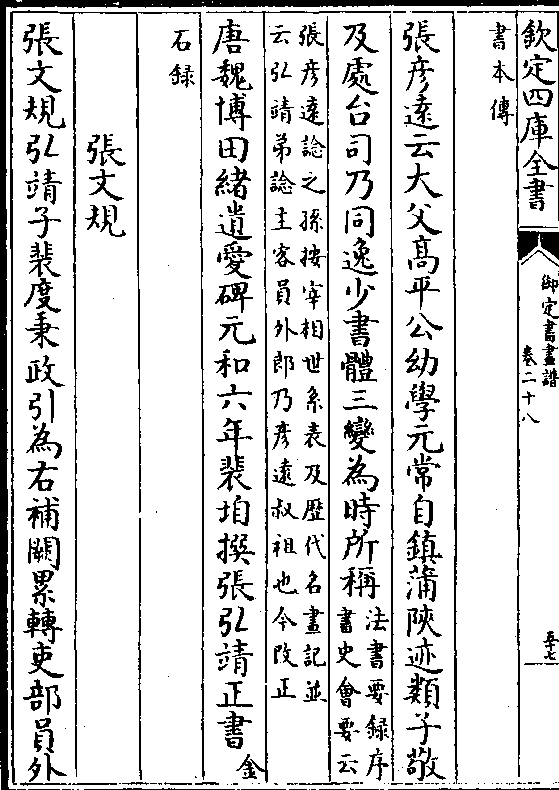 欽定四庫全書
御定書畫譜
卷二十八
五十七
書本傳
張彥逺云大父髙平公幼學元常自鎮蒲陝迹類子敬
及處台司乃同逸少書體三變為時所稱
法書要録序
書史會要云
張彥逺諗之孫按宰相世系表及歴代名畫記並
云弘靖弟諗主客員外郎乃彥逺叔祖也今改正
唐魏博田緒遺愛碑元和六年裴垍撰張弘靖正書
金
石録
張文規
張文規弘靖子裴度秉政引為右補闕累轉吏部員外